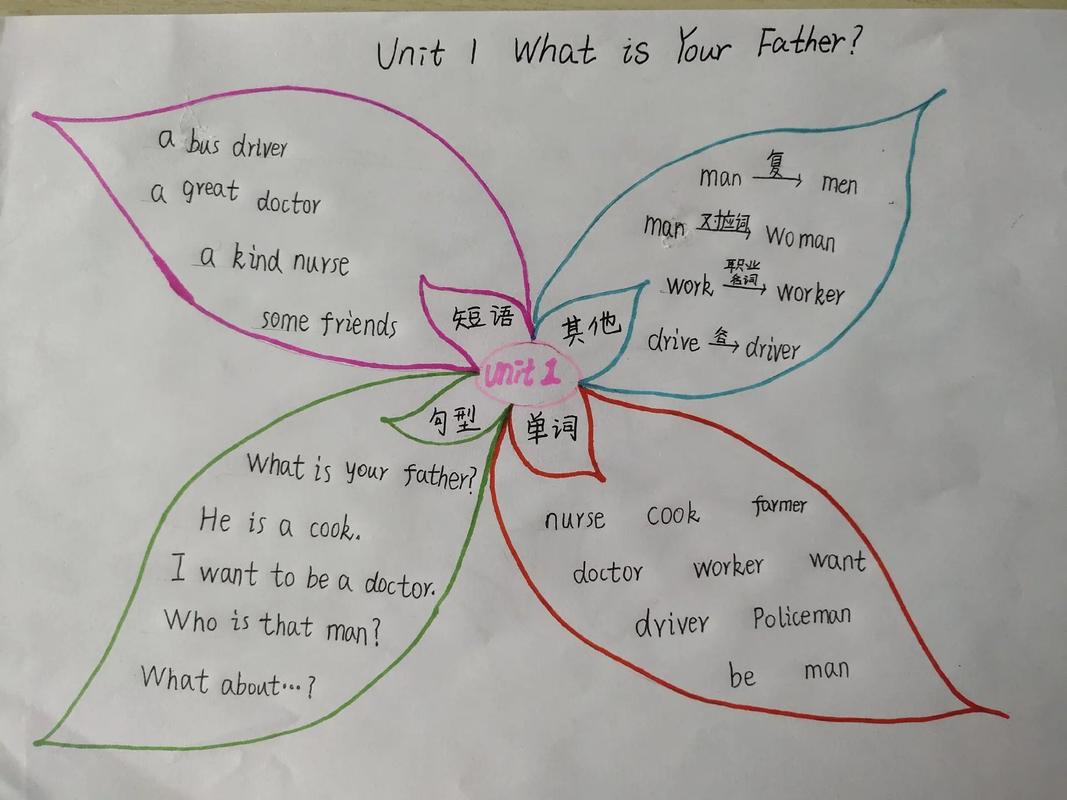 Unit 1 What is Your Father?
a bus driver
a great doctor
a kind nurse
some friends
短语
man 复 men
man 对应词 Woman
work 职业名词 worker
drive 名 driver
其他
Unit 1
句型
What is your father?
He is a cook.
I want to be a doctor.
Who is that man?
What about…?
单词
nurse cook farmer
doctor worker want
driver Policeman
be man